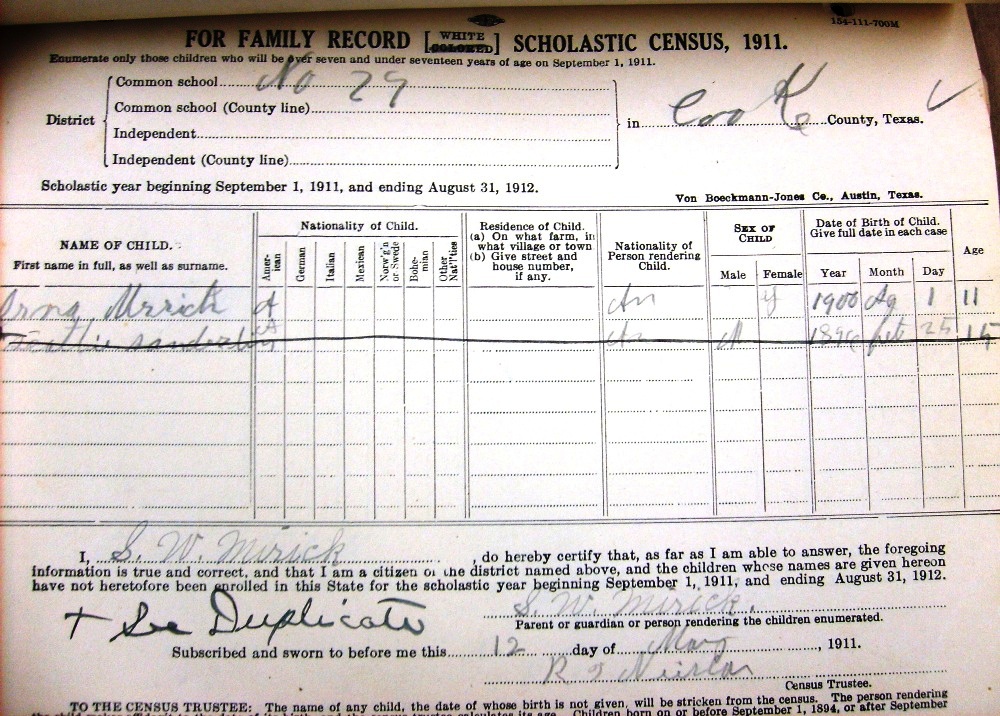 154-111-700M
FOR FAMILY RECORD [WHITE COLORED] SCHOLASTIC CENSUS, 1911.
Enumerate only those children who will be over seven and under seventeen years of age on September 1, 1911.
District
Common school No 29
Common school (County line)
Independent
Independent (County line)
in Cooke County, Texas.
Scholastic year beginning September 1, 1911, and ending August 31, 1912.
Von Boeckmann-Jones Co., Austin, Texas.
NAME OF CHILD.
First name in full, as well as surname.
Nationality of Child.
Amer-ican
German
Italian
Mexican
Norw'g'n or Swede
Bohe-mian
Other Nat'l'ties
Residence of Child.
(a) On what farm, in what village or town
(b) Give street and house number, if any.
Nationality of Person rendering Child.
SEX OF CHILD
Male
Female
Date of Birth of Child.
Give full date in each case
Year
Month
Day
Age
Mirick A An 1900 Ag 1 11
sanderlin A M 1896 feb 25 15
I, S. W. Mirick, do hereby certify that, as far as I am able to answer, the foregoing
information is true and correct, and that I am a citizen of the district named above, and the children whose names are given hereon
have not heretofore been enrolled in this State for the scholastic year beginning September 1, 1911, and ending August 31, 1912.
S. W. Mirick.
Parent or guardian or person rendering the children enumerated.
+ See Duplicate
Subscribed and sworn to before me this 12 day of May, 1911.
Census Trustee.
TO THE CENSUS TRUSTEE: The name of any child, the date of whose birth is not given, will be stricken from the census. The person rendering
Children born on or before September 1, 1894, or after September